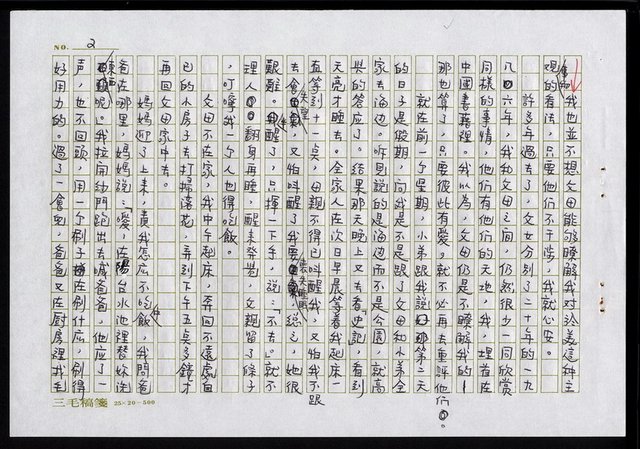 NO. 2
我也並不想父母能夠瞭解我對沙漠這種主
觀的看法，只要他們不干涉，我就心安。
許多年過去了，父女分別了二十年的一九
八六年，我和父母之間，仍然很少一同欣賞
同樣的事情，他們有他們的天地，我，埋首在
中國書籍裡。我以為，父母仍是不瞭解我的——
那也算了，只要彼此有愛，就不必再去重評他們。
就在前一個星期，小弟跟我說第二天
的日子是假期，問我是不是跟了父母和小弟全
家去海邊。聽見說的是海邊而不是公園，就高
興的答應了。結果那天晚上又去看書，看到
天亮才睡去。全家人在次日早晨等著我起床一
直等到十一點，母親不得已叫醒我，又怕我不跟
去會失望，又怕叫醒了我要喪失睡眠，總之，她很
艱難。我醒了，只揮一下手，說：「不去。」就不
理人翻身再睡，醒來發覺，父親留了條子
，叮嚀我一個人也得吃飯。
父母不在家，我中午起床，奔回不遠處自
己的小房子去打掃落花，弄到下午五點多鐘才
再回父母家中去。
媽媽迎了上來，責我怎麼不吃中飯，我問爸
爸在哪里，媽媽說：「噯，在陽台水池裡替妳洗
東西呢。」我拉開紗門跑出去喊爸爸，他應了一
聲，也不回頭，用一個刷子在刷什麼，刷得
好用力的。過了一會兒，爸爸又在廚房裡找毛
三毛稿箋 25×20=500